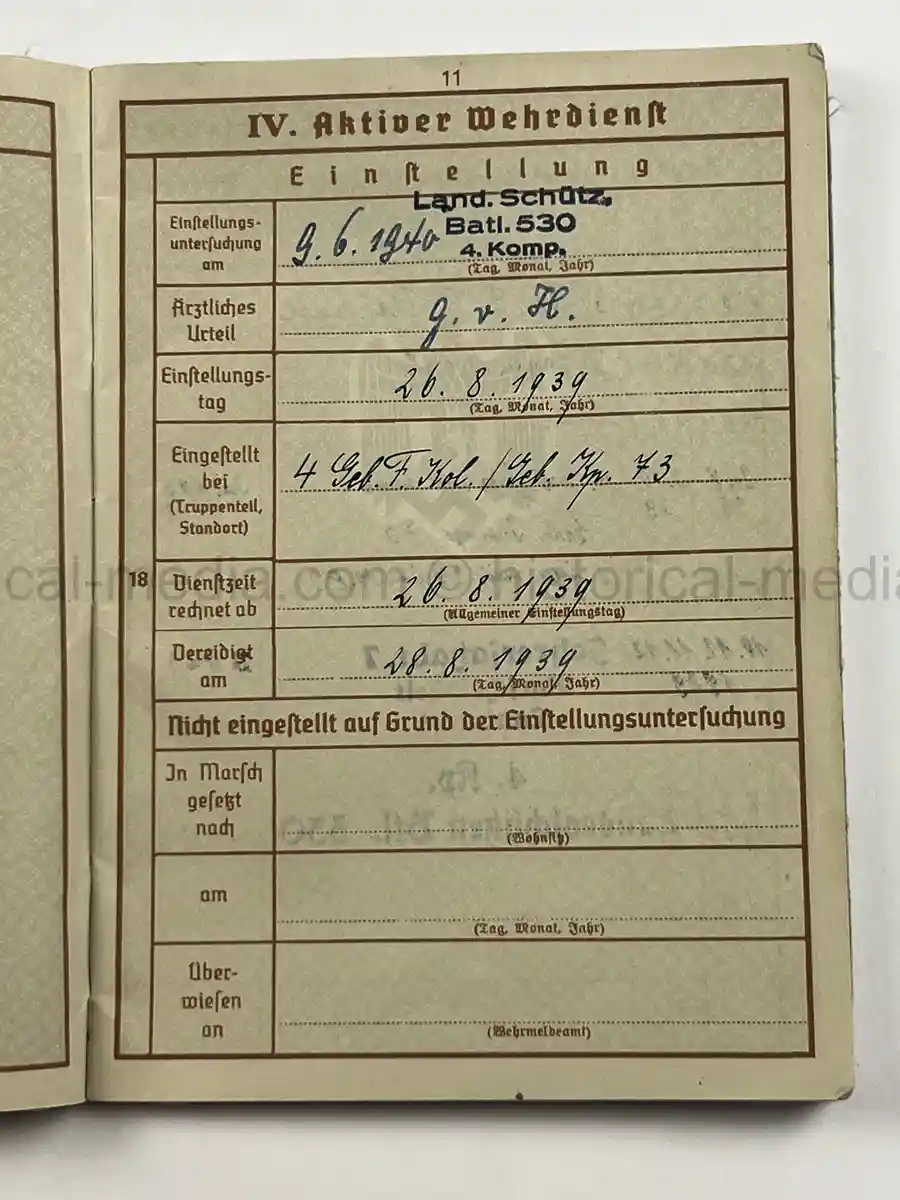 11
IV. Aktiver Wehrdienst
Einstellung
Land. Schütz.
Einstellungs-
untersuchung
am
9. 6. 1940
Batl. 530
4. Komp.
(Tag, Monat, Jahr)
Ärztliches
Urteil
g. v. H.
Einstellungs-
tag
26. 8. 1939
(Tag, Monat, Jahr)
Eingestellt
bei
(Truppenteil,
Standort)
4 Geb. F. Kol. / Geb. Kp. 73
18
Dienstzeit
rechnet ab
26. 8. 1939
(Allgemeiner Einstellungstag)
Vereidigt
am
28. 8. 1939
(Tag, Monat, Jahr)
Nicht eingestellt auf Grund der Einstellungsuntersuchung
In Marsch
gesetzt
nach
(Wohnsitz)
am
(Tag, Monat, Jahr)
Über-
wiesen
an
(Wehrmeldeamt)
cal-media.com © historical-media